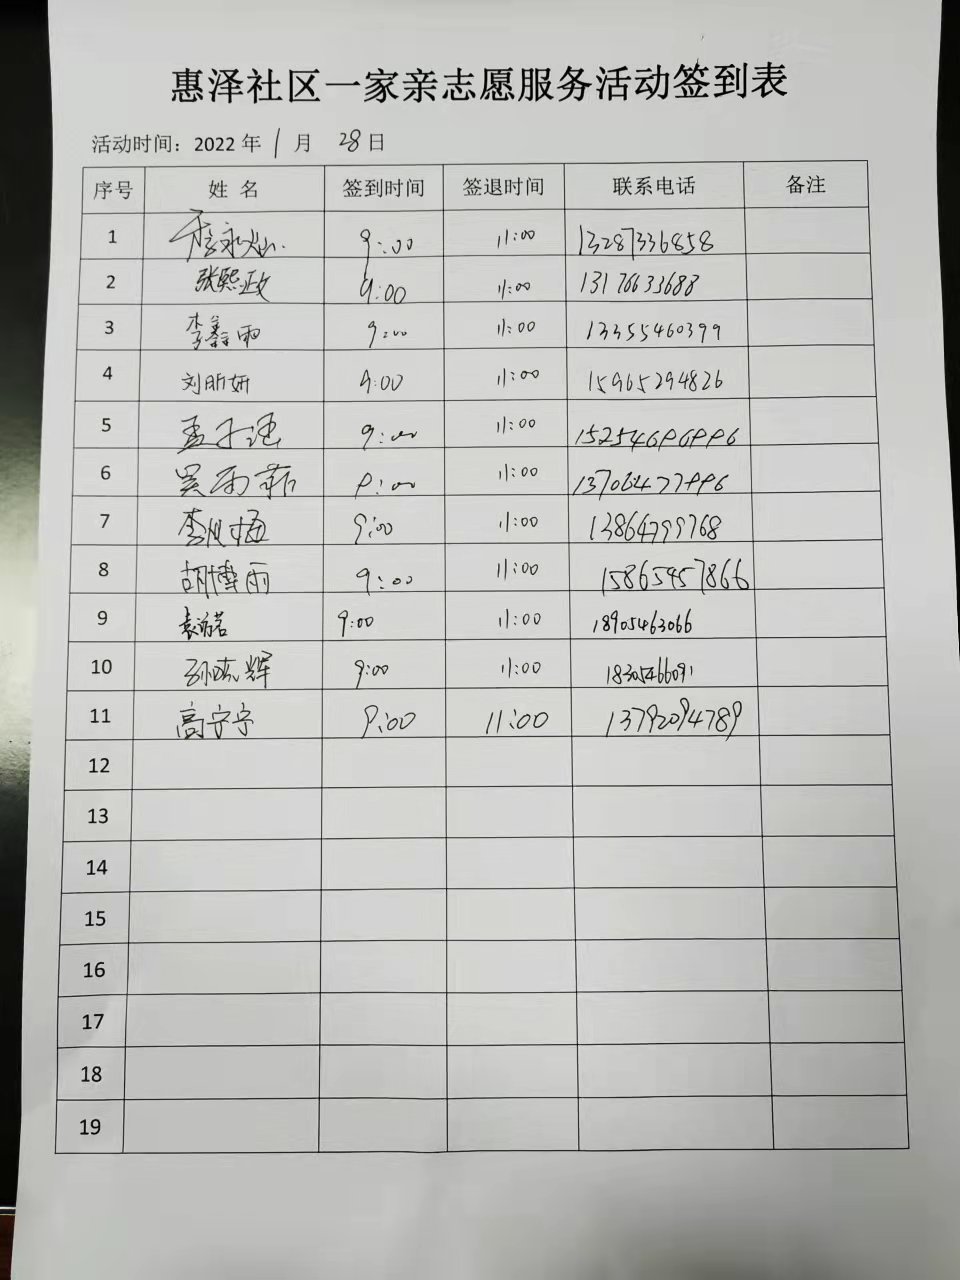 惠泽社区一家亲志愿服务活动签到表
活动时间：2022 年 1 月 28 日
序号 姓 名 签到时间 签退时间 联系电话 备注
1 9:00 11:00 13287336858
2 张熙政 9:00 11:00 13176633688
3 李鑫雨 9:00 11:00 13355460399
4 刘昕妍 9:00 11:00 15965294826
5 孟子涵 9:00 11:00 15254696996
6 吴雨菲 9:00 11:00 13706477996
7 9:00 11:00 13864799768
8 胡博雨 9:00 11:00 15865457866
9 9:00 11:00 18905463066
10 孙晓辉 9:00 11:00 18305466091
11 高宁宁 9:00 11:00 13792094789
12
13
14
15
16
17
18
19